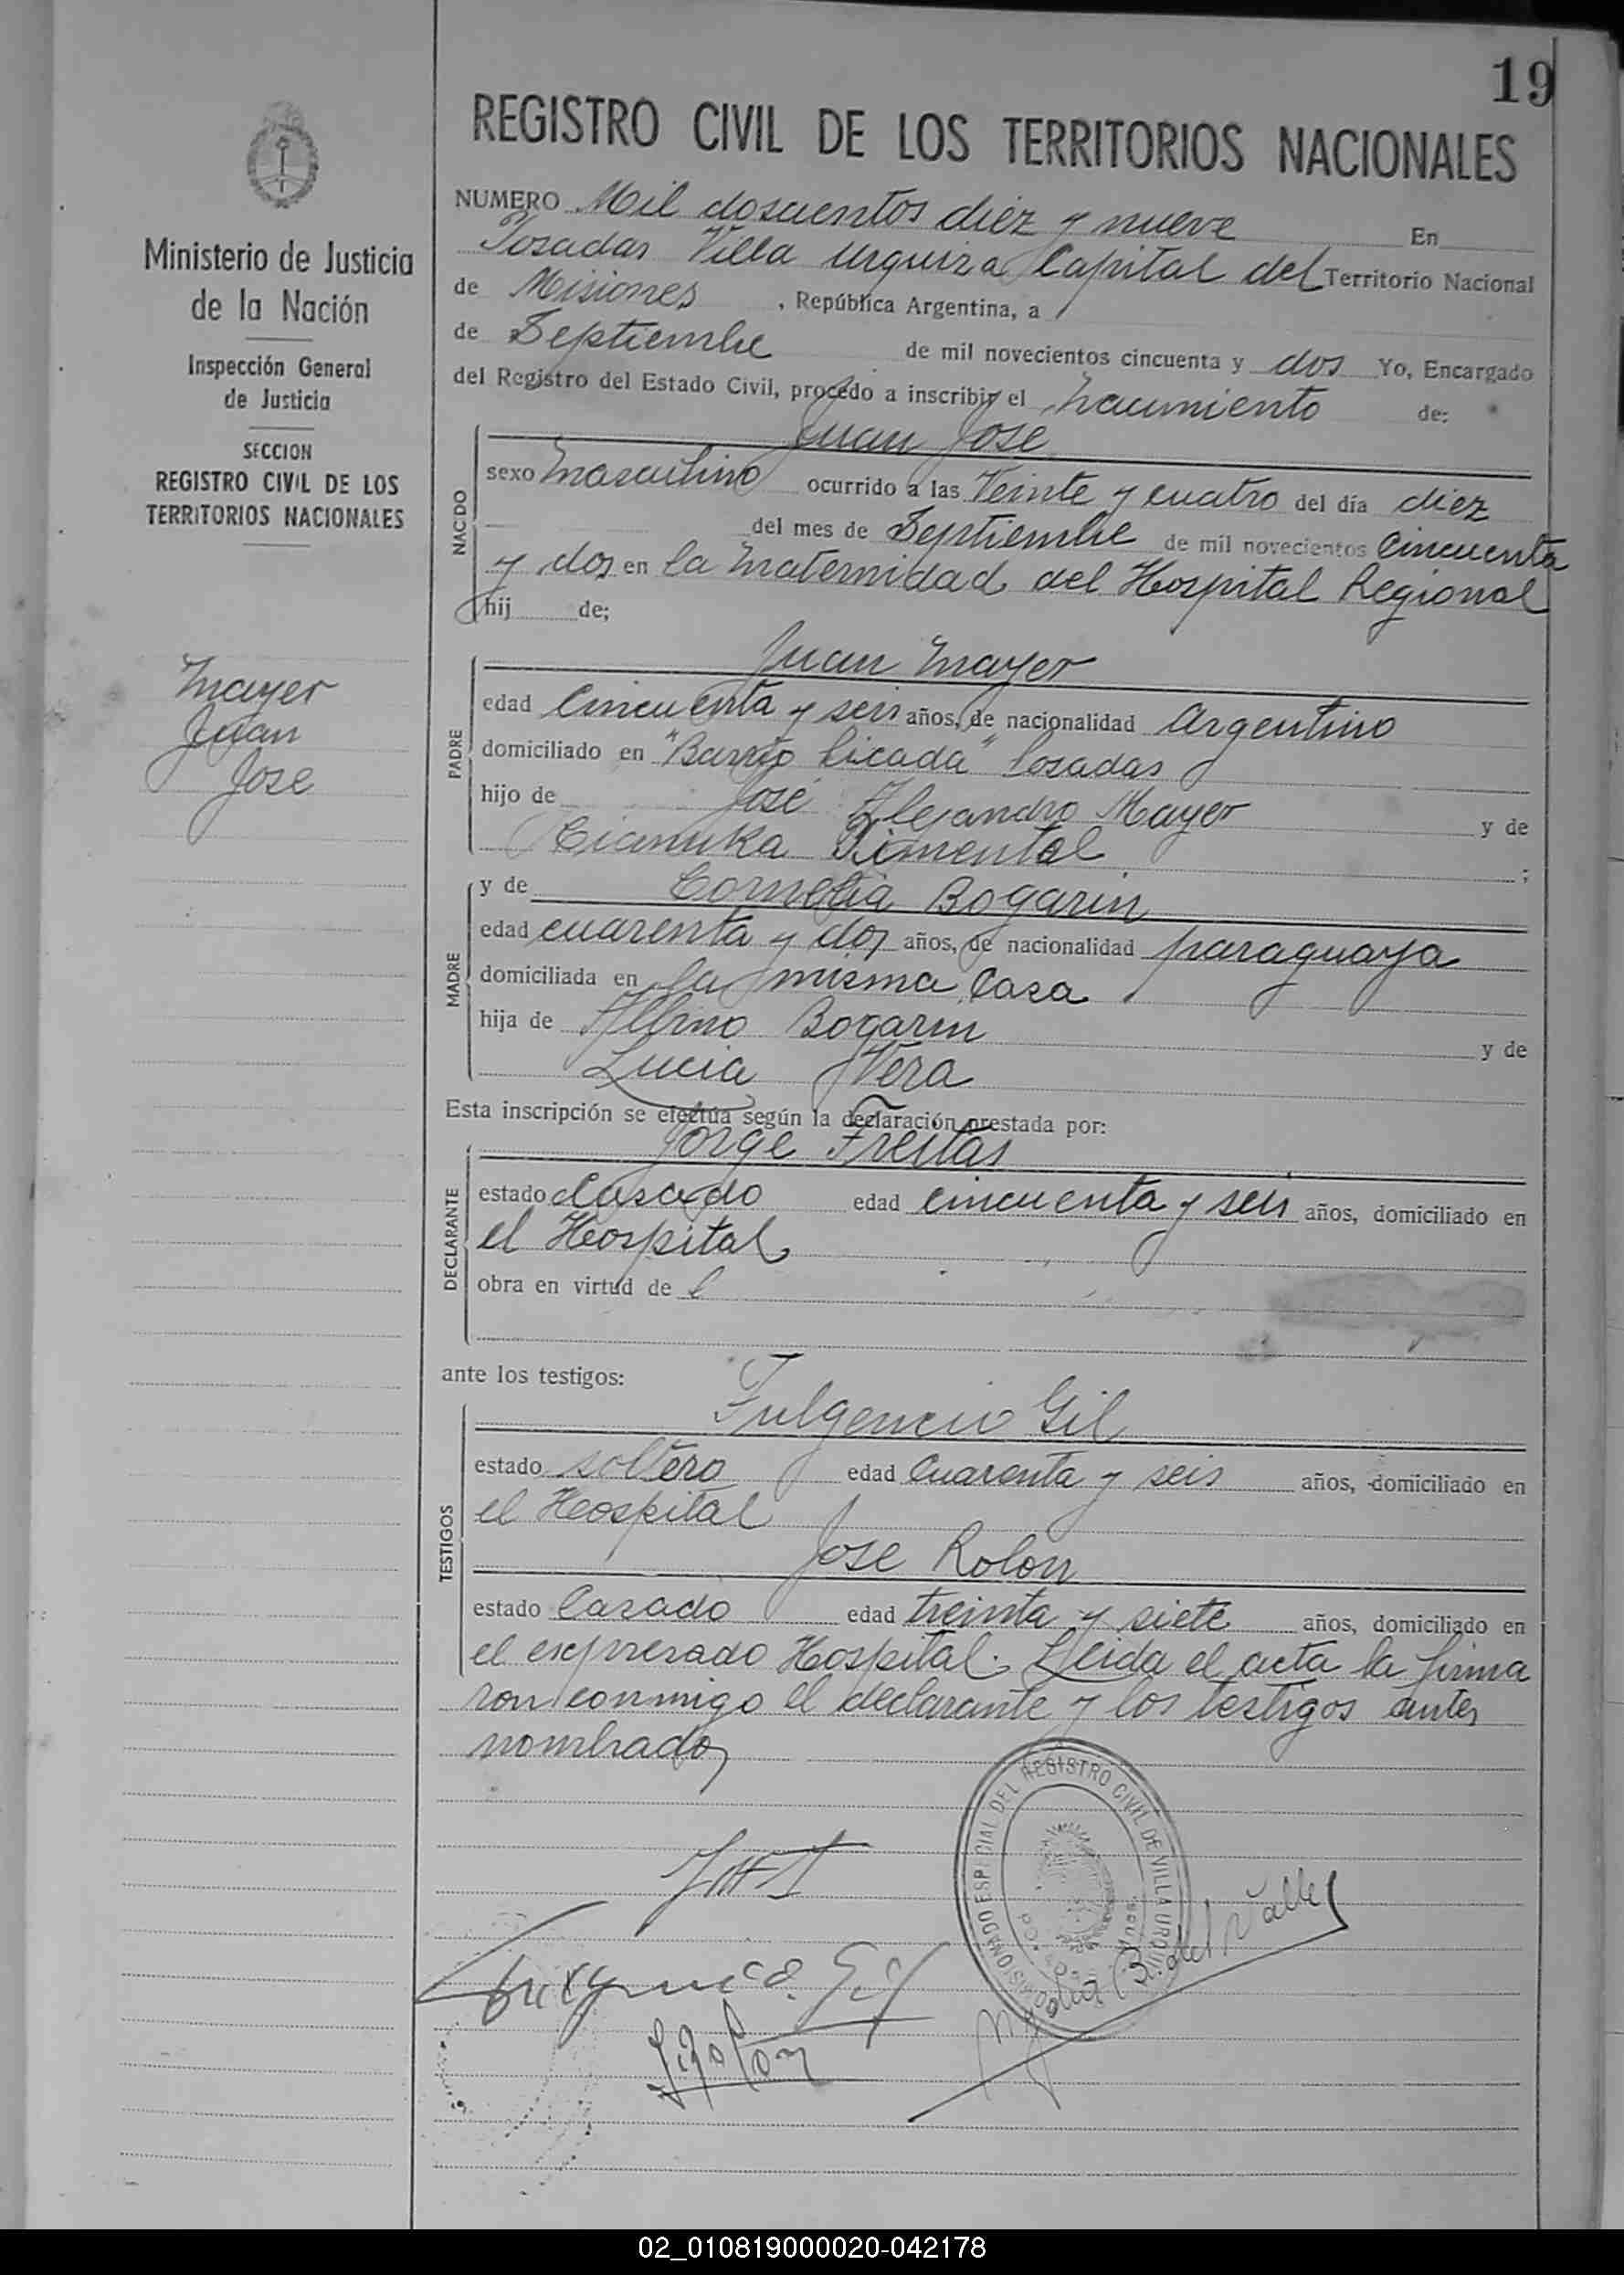 19
REGISTRO CIVIL DE LOS TERRITORIOS NACIONALES
Ministerio de Justicia
de la Nación
Inspección General
de Justicia
SECCION
REGISTRO CIVIL DE LOS
TERRITORIOS NACIONALES
Mayer
Juan
Jose
NUMERO Mil doscientos diez y nueve En
Posadas Villa Urquiza Capital del Territorio Nacional
de Misiones , República Argentina, a
de Septiembre de mil novecientos cincuenta y dos Yo, Encargado
del Registro del Estado Civil, procedo a inscribir el Nacimiento de:
NACIDO
Juan Jose
sexo Masculino ocurrido a las Veinte y cuatro del día diez
del mes de Septiembre de mil novecientos Cincuenta
y dos en la Maternidad del Hospital Regional
hij de;
PADRE
Juan Mayer
edad Cincuenta y seis años, de nacionalidad Argentino
domiciliado en "Barrio Picada" Posadas
hijo de José Alejandro Mayer y de
Pimental ;
MADRE
y de Cornelia Bogarin
edad cuarenta y dos años, de nacionalidad paraguaya
domiciliada en la misma Casa
hija de Albino Bogarin y de
Lucia Vera
Esta inscripción se efectúa según la declaración prestada por:
DECLARANTE
Jorge Freitas
estado Casado edad cincuenta y seis años, domiciliado en
el Hospital
obra en virtud de
ante los testigos:
TESTIGOS
Fulgencio Gil
estado soltero edad Cuarenta y seis años, domiciliado en
el Hospital
Jose Rolon
estado Casado edad treinta y siete años, domiciliado en
el expresado Hospital. Leida el acta la firma
ron conmigo el declarante y los testigos antes
nombrados
REGISTRO CIVIL DE VILLA URQUIZA
Gil
B. del Valle
02_010819000020-042178